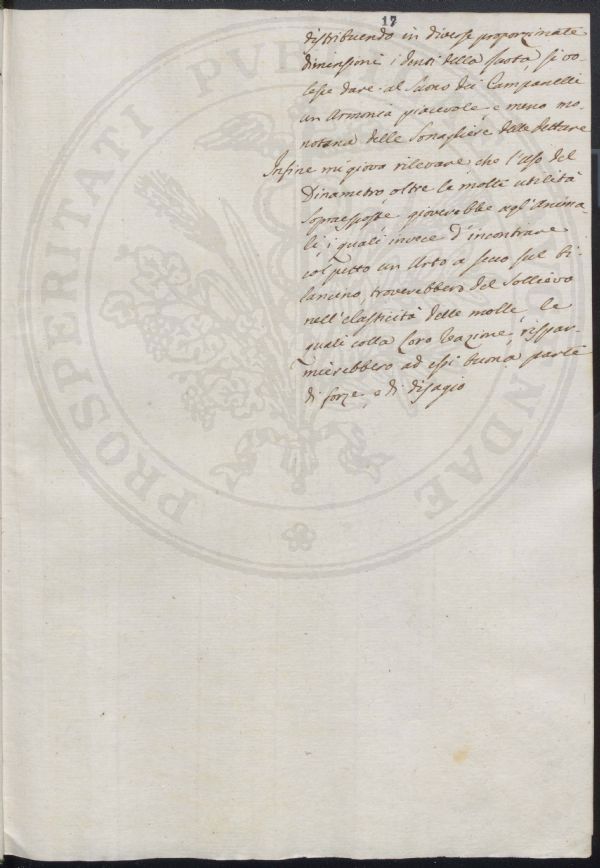 17
distribuendo in diverse proporzionate
dimensioni i denti della Ruota, si vo-
lesse dare al Suono dei Campanelli
un Armonia piacevole, e meno mo-
notona delle Sonagliere dette
Infine mi giova rilevare che l'uso del
Dinametro, oltre le molte utilità
Sopraesposte gioverebbe agl'Anima-
li, i quali invece d'incontrare
col petto un Urto a secco sul bi-
lancino, troverebbero del Sollievo
nell'elasticità delle molle, le
quali colla loro reazione, rispar-
mierebbero ad essi buona parte
di forze, e di disagio
PROSPERITATI PUBLICAE AUGENDAE